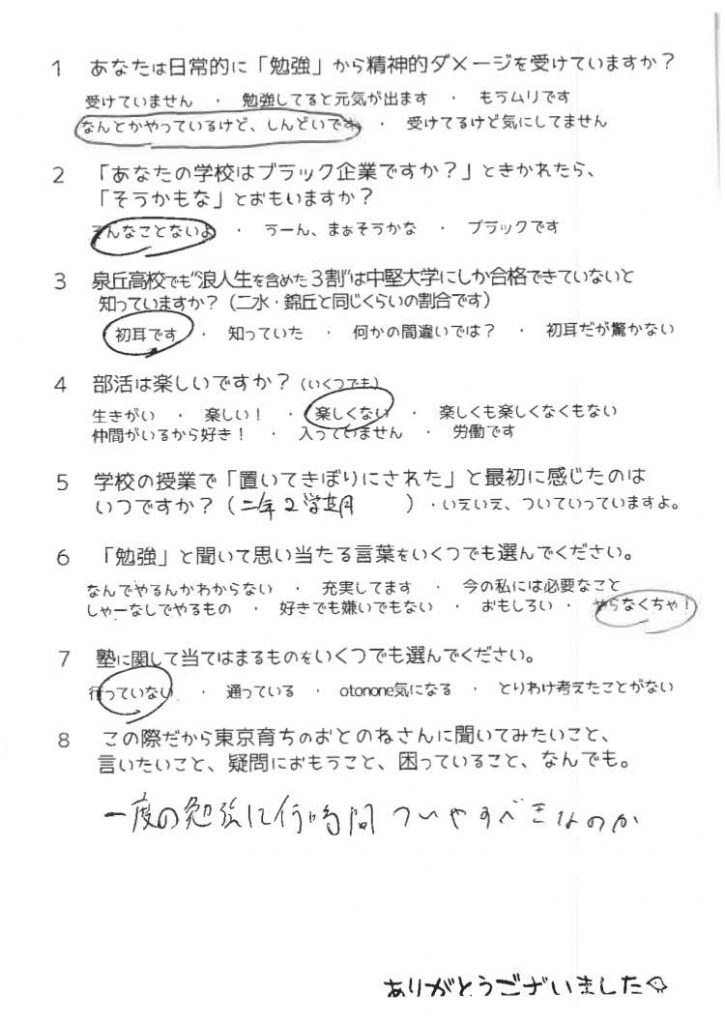 1 あなたは日常的に「勉強」から精神的ダメージを受けていますか？
受けていません ・ 勉強してると元気が出ます ・ もうムリです
なんとかやっているけど、しんどいです ・ 受けてるけど気にしてません
2 「あなたの学校はブラック企業ですか？」ときかれたら、
「そうかもな」とおもいますか？
そんなことないよ ・ うーん、まぁそうかな ・ ブラックです
3 泉丘高校でも“浪人生を含めた３割”は中堅大学にしか合格できていないと
知っていますか？（二水・錦丘と同じくらいの割合です）
初耳です ・ 知っていた ・ 何かの間違いでは？ ・ 初耳だが驚かない
4 部活は楽しいですか？（いくつでも）
生きがい ・ 楽しい！ ・ 楽しくない ・ 楽しくも楽しくなくもない
仲間がいるから好き！ ・ 入っていません ・ 労働です
5 学校の授業で「置いてきぼりにされた」と最初に感じたのは
いつですか？（二年２学期 ）・いえいえ、ついていっていますよ。
6 「勉強」と聞いて思い当たる言葉をいくつでも選んでください。
なんでやるんかわからない ・ 充実してます ・ 今の私には必要なこと
しゃーなしでやるもの ・ 好きでも嫌いでもない ・ おもしろい ・ やらなくちゃ！
7 塾に関して当てはまるものをいくつでも選んでください。
行っていない ・ 通っている ・ otonone気になる ・ とりわけ考えたことがない
8 この際だから東京育ちのおとのねさんに聞いてみたいこと、
言いたいこと、疑問におもうこと、困っていること、なんでも。
一度の勉強に何時間ついやすべきなのか
ありがとうございました